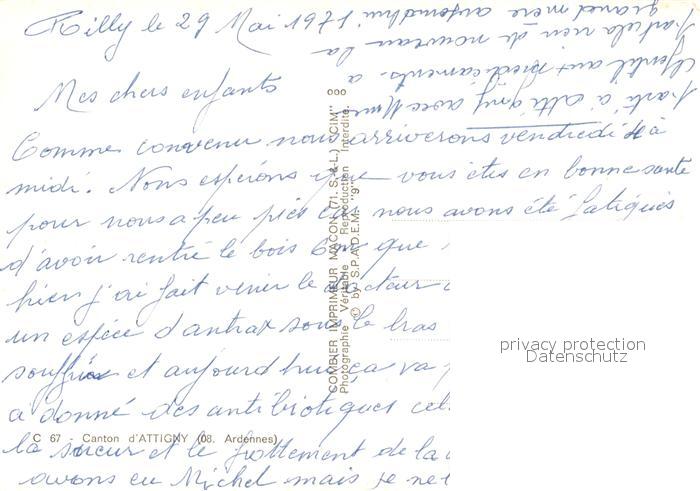 Rilly le 29 Mai 1971
Mes chers enfants
Comme convenu nous arriverons vendredi 4 à
midi. Nous espérons que vous êtes en bonne santé
pour nous a peu près car nous avons été fatigués
d'avoir rentré le bois que
hier j'ai fait venir le docteur
un espèce d'antrax sous le bras
souffrir et aujourd'hui ça va
a donné des antibiotiques
la sueur et le frottement de la
avons eu Michel mais je ne
parti à Attigny avec
aux médicaments. a
rien de nouveau la
grand mère aujourdhui
COMBIER IMPRIMEUR MACON (71. S.-&-L.) "CIM"
Photographie Véritable Reproduction Interdite.
© by S.P.A.D.E.M. "9"
C 67 - Canton d'ATTIGNY (08. Ardennes)
privacy protection
Datenschutz